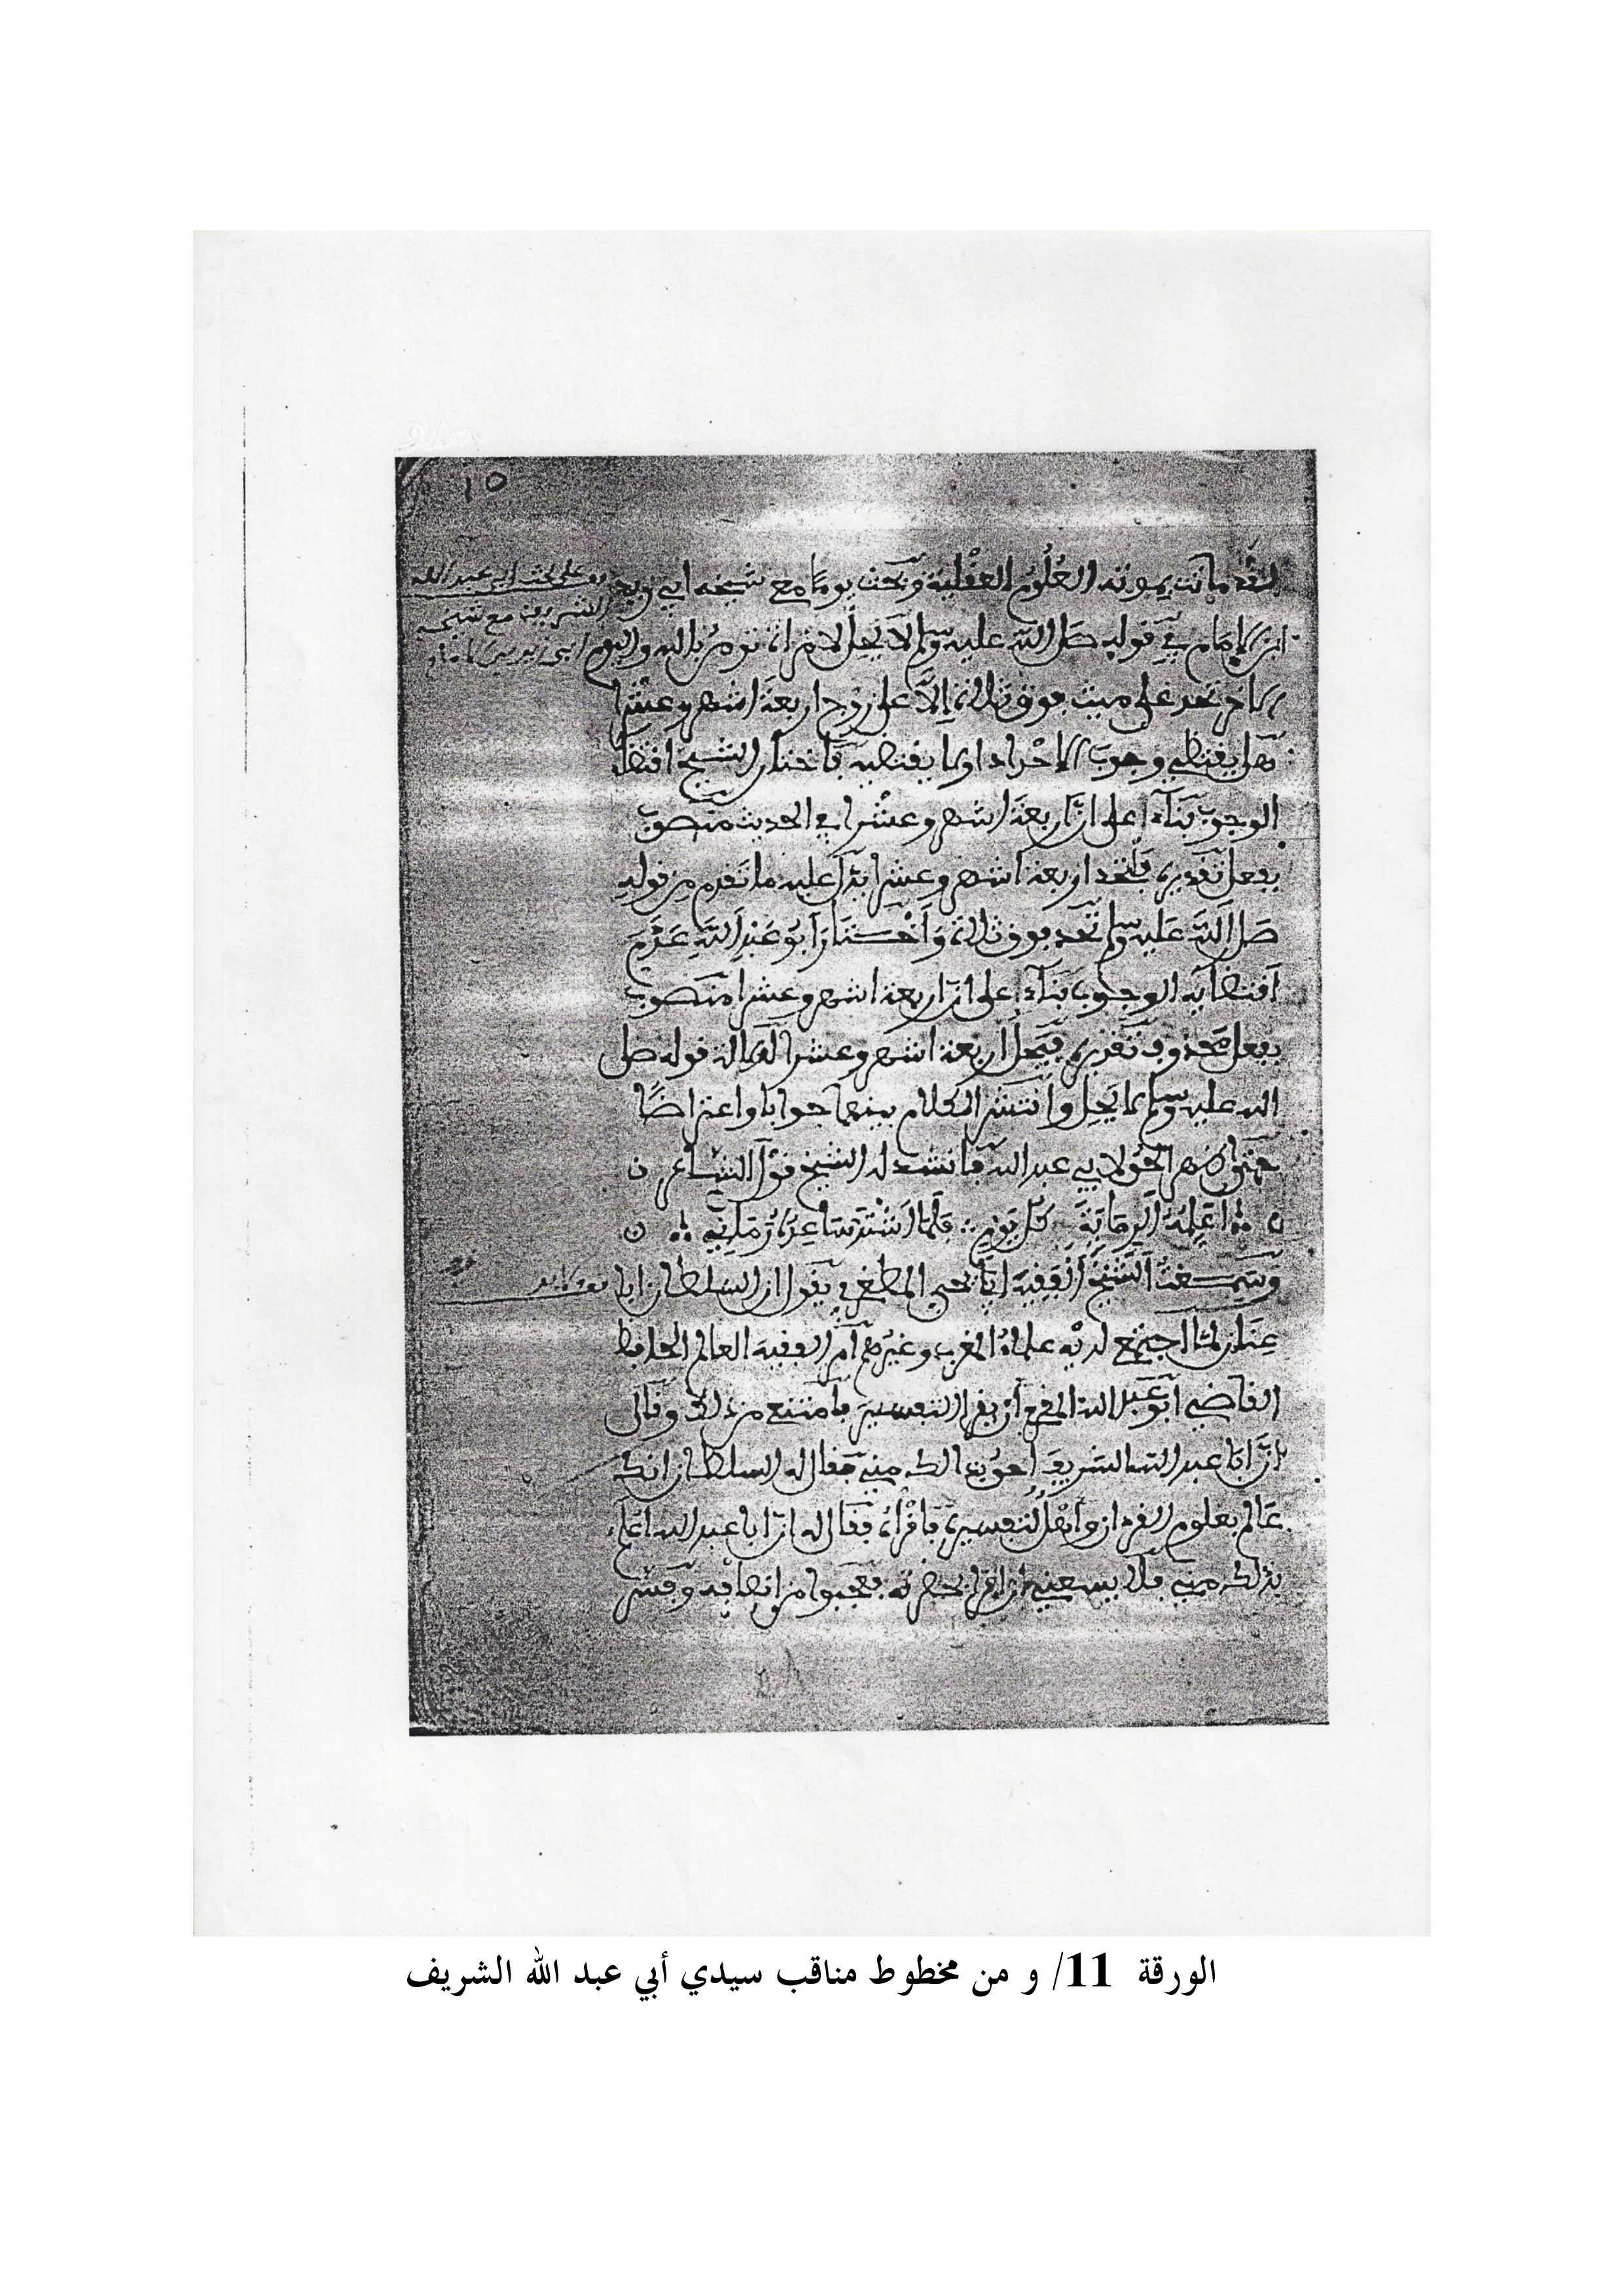 ١٥
لقد ماتت بموته العلوم العقلية وبحث يوما مع شيخه ابي زيد
ابن الامام في قوله صلى الله عليه وسلم لا يحل لامراة تومن بالله واليوم
الاخر تحد على ميت فوق ثلاثة الا على زوج اربعة اشهر وعشرا
هل يقتضي وجوب الاحداد او لا يقتضيه فاختار الشيخ اقتضا
الوجوب بناء على ان اربعة اشهر وعشرا في الحديث منصوب
بفعل تقديره فلتحد اربعة اشهر وعشرا يدل عليه ما تقدم من قوله
صلى الله عليه وسلم تحد فوق ثلاثة واختار ابو عبد الله عدم
اقتضايه الوجوب بناء على ان اربعة اشهر وعشرا منصوب
بفعل محذوف تقديره فيحل اربعة اشهر وعشرا لدلالة قوله صلى
الله عليه وسلم لا يحل وانتشر الكلام بينهما جوابا واعتراضا
حتى ظهر الحق لابي عبد الله فانشد له الشيخ قول الشاعر
اعلمه الرماية كل يوم فلما اشتد ساعده رماني
وسمعت الشيخ الفقيه ابا يحيى المطغري يقول ان السلطان ابا
عنان لما اجتمع لديه علماء المغرب وغيرهم امر الفقيه العالم الحافظ
القاضي ابو عبد الله المقري ان يقرا التفسير فامتنع من ذلك وقال
ان ابا عبد الله الشريف احق بذالك مني فقال له السلطان انك
عالم بعلوم القرءان واهل لتفسيره فاقراه فقال له ان ابا عبد الله اعلم
بذلك مني فلا يسعني ان اقرا بحضرته فعجبوا من انصافه وفسر
على بحث ابي عبد الله
الشريف مع شيخه
ابي زيد بن الامام
الورقة 11/ و من مخطوط مناقب سيدي أبي عبد الله الشريف